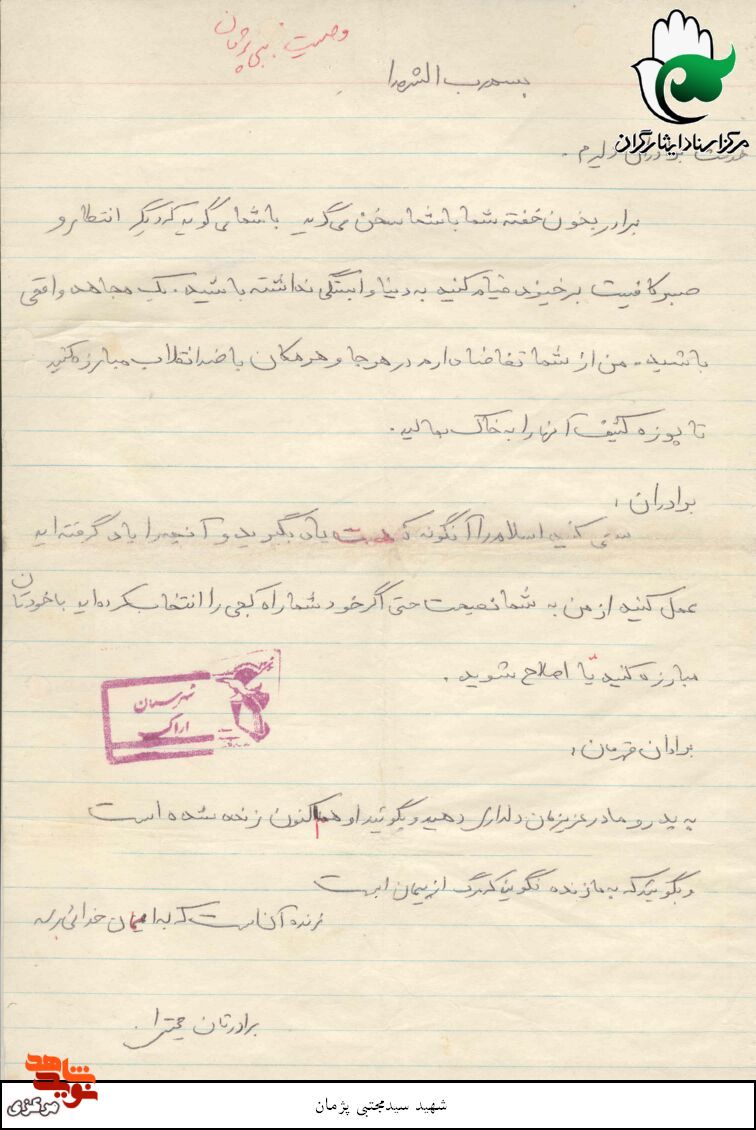 وصیت نبی پژمان
بسم رب الشهدا
مرکز اسناد ایثارگران
خدمت برادران دلیرم .
برادر بخون خفته شما با شما سخن می گوید با شما می گوید که دیگر انتظار و
صبر کافیست برخیزید قیام کنید به دنیا وابستگی نداشته باشید . یک مجاهد واقعی
باشید . من از شما تقاضا دارم در هر جا و هر مکان با ضد انقلاب مبارزه کنید
تا پوزه کثیف آنها را به خاک بمالید .
برادران :
سعی کنید اسلام را آنگونه که هست یاد بگیرید و آنچه را یاد گرفته اید
عمل کنید از من به شما نصیحت حتی اگر خود شما راه کجی را انتخاب کرده اید با خودتان
مبارزه کنید یا اصلاح شوید .
شهرستان
اراک
برادان قهرمان :
به پدر و مادر عزیزمان دلداری دهید و بگوئید او هم اکنون زنده شده است
و بگوئید که به ما زنده نگویند که مرگ از پیمان است
زنده آن است که به ایمان خدائی برسد
برادرتان مجتبی
شاهد
نوید
مرکزی
شهید سیدمجتبی پژمان